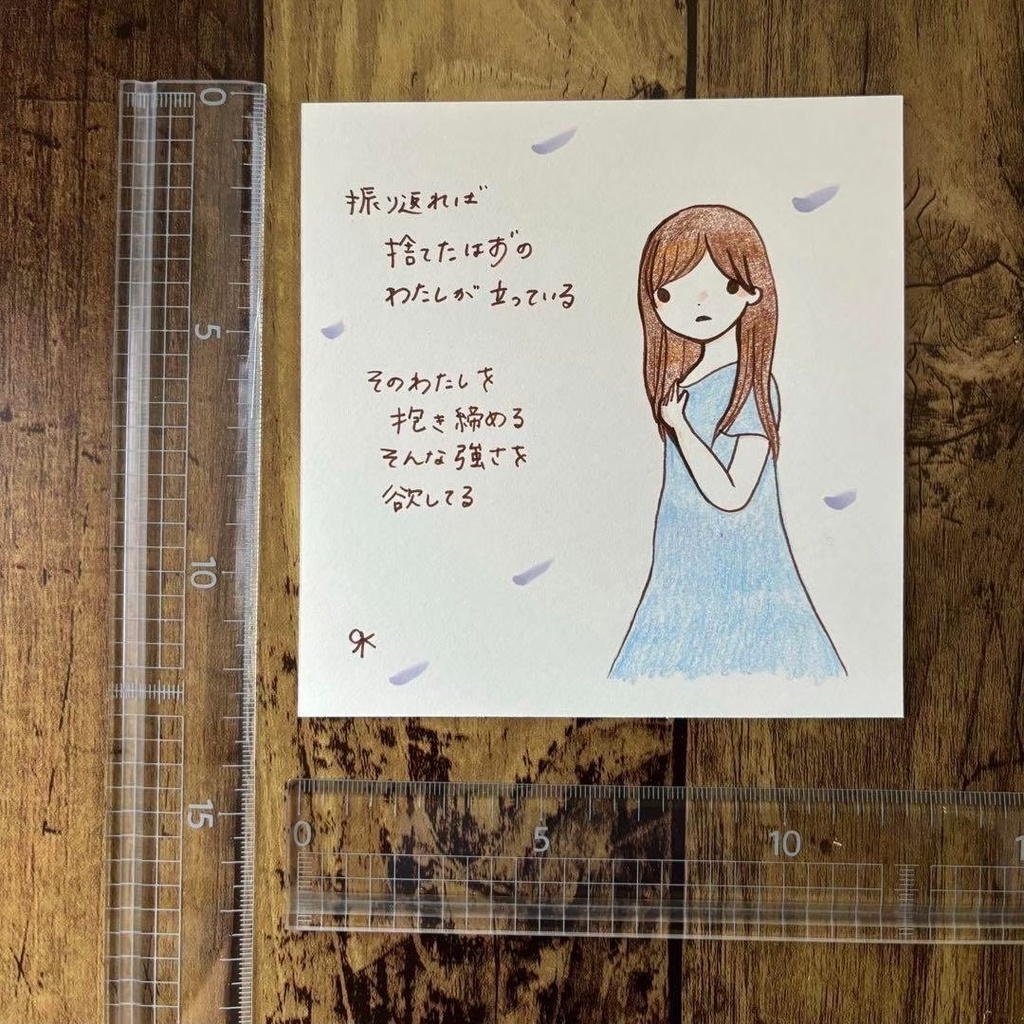 振り返れば
捨てたはずの
わたしが立っている
そのわたしを
抱き締める
そんな強さを
欲してる
0
5
10
15
0
5
10